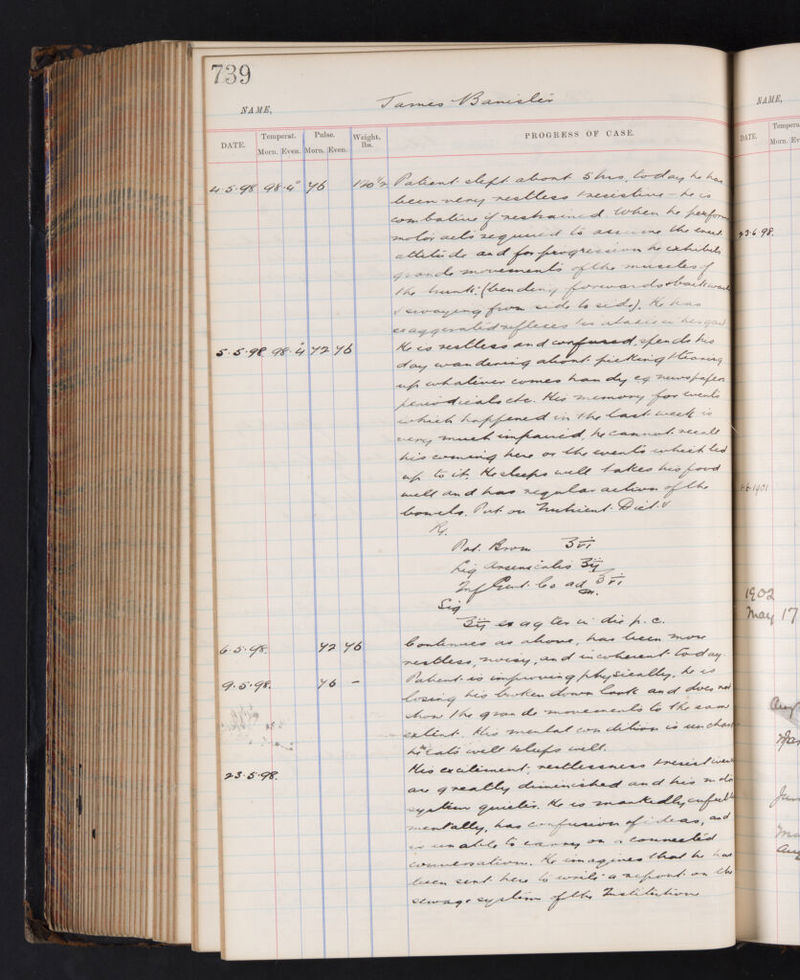 739
NAME, James Banister
DATE. Temperat. Morn. Even. Pulse. Morn. Even. Weight. lbs. PROGRESS OF CASE.
4.5.98 98.4° 76 120½ Patient slept about 5 hrs. today he has
been very restless & resistive – he is
combative if restrained. When he perform
motor acts required to assume the erect
attitude and for progression he exhibits
grande movements of the muscles of
the trunk: (bending forwards & backward
& swaying from side to side). He has
exaggerated reflexes & is ataxic in his gait
5.5.98 98.4 72 76 He is restless and confused, spends his
day wandering about picking & tearing
up whatever comes handy eg newspapers
periodicals etc. His memory for events
which happened in the last week is
very much impaired, he cannot recall
his coming here or the events which led
up to it. He sleeps well takes his food
well and has regular action of the
bowels. Put on Nutrient Diet &
Rx.
Pot. Brom ʒvi
Liq Arsenicalis ʒij
Inf Gent. Co ad ℥vi
m.
Sig
ʒij ex aq ter in die p.c.
6.5.98. 72 76 Continues as above, has been more
restless, noisy, and incoherent today.
9.5.98. 76 – Patient is improving physically, he is
losing his broken down look and does not
show the grande movements to the same
extent. His mental condition is unchan
he eats well & sleeps well.
23.5.98. His excitement, restlessness & resistiven
are greatly diminished and his motor
system quieter. He is markedly enfeebl
mentally, has confusion of ideas, and
is unable to carry on a connected
conversation. He imagines that he has
been sent here to write a report on the
sewage system of the Institution
NAME,
DATE. Tempera Morn. Ev
23.6.98.
6.6.1901
1902
May 17
Aug
Jan
Jun
Ma
Aug